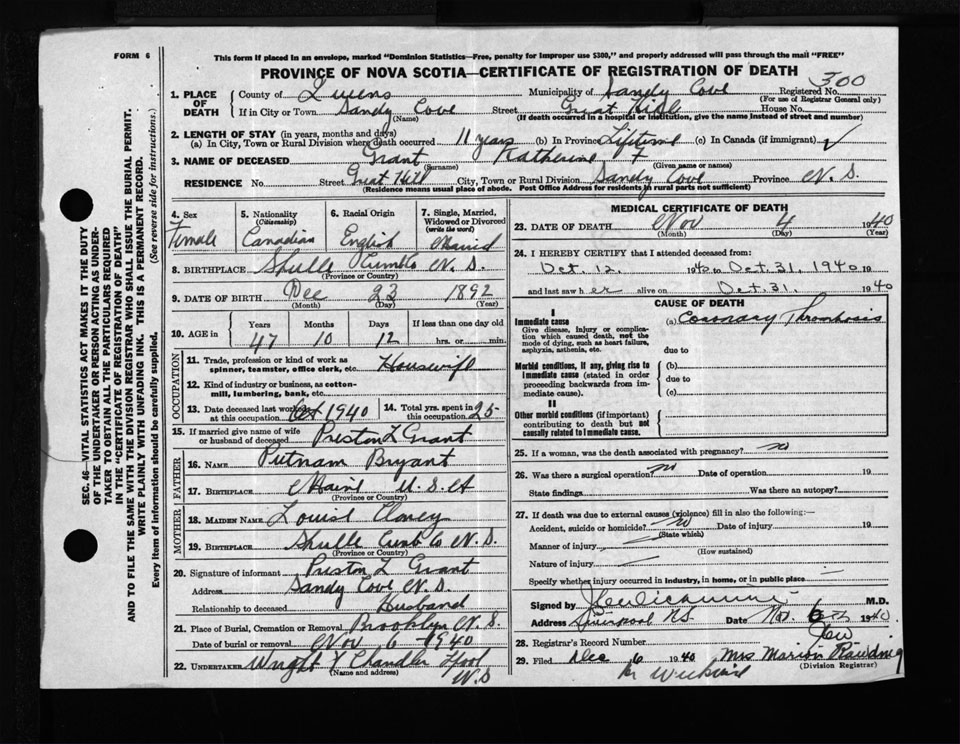 FORM 6
This form if placed in an envelope, marked "Dominion Statistics—Free, penalty for improper use $300," and properly addressed will pass through the mail "FREE"
PROVINCE OF NOVA SCOTIA—CERTIFICATE OF REGISTRATION OF DEATH
300
1. PLACE OF DEATH
County of Queens Municipality of Sandy Cove Registered No.
(For use of Registrar General only)
If in City or Town Sandy Cove Street Great Hill House No.
(Name) (If death occurred in a hospital or institution, give the name instead of street and number)
2. LENGTH OF STAY (in years, months and days)
(a) In City, Town or Rural Division where death occurred 11 years (b) In Province Lifetime (c) In Canada (if immigrant) ✓
3. NAME OF DECEASED Grant Katherine F
(Surname) (Given name or names)
RESIDENCE No. Street Great Hill City, Town or Rural Division Sandy Cove Province N.S.
(Residence means usual place of abode. Post Office Address for residents in rural parts not sufficient)
4. Sex Female
5. Nationality (Citizenship) Canadian
6. Racial Origin English
7. Single, Married, Widowed or Divorced (write the word) Married
8. BIRTHPLACE Shulle Cumb Co N.S.
(Province or Country)
9. DATE OF BIRTH Dec 23 1892
(Month) (Day) (Year)
10. AGE in Years Months Days If less than one day old
47 10 12 hrs. or min.
OCCUPATION
11. Trade, profession or kind of work as spinner, teamster, office clerk, etc. Housewife
12. Kind of industry or business, as cotton-mill, lumbering, bank, etc.
13. Date deceased last worked at this occupation Oct 1940
14. Total yrs. spent in this occupation 25
15. If married give name of wife or husband of deceased Preston L Grant
FATHER
16. NAME Putnam Bryant
17. BIRTHPLACE Maine U.S.A
(Province or Country)
MOTHER
18. MAIDEN NAME Louise
19. BIRTHPLACE Shulle Cumb Co N.S.
(Province or Country)
20. Signature of informant Preston L Grant
Address Sandy Cove N.S.
Relationship to deceased Husband
21. Place of Burial, Cremation or Removal Brooklyn N.S.
Date of burial or removal Nov 6 1940
22. UNDERTAKER Wright Y Chandler Lpool
(Name and address) N.S
MEDICAL CERTIFICATE OF DEATH
23. DATE OF DEATH Nov 4 1940
(Month) (Day) (Year)
24. I HEREBY CERTIFY that I attended deceased from:
Oct. 12 1940 to Oct. 31, 1940 19
and last saw her alive on Oct. 31. 1940
CAUSE OF DEATH
I
Immediate cause
Give disease, injury or complication which caused death, not the mode of dying, such as heart failure, asphyxia, asthenia, etc.
(a) Coronary Thrombosis
due to
Morbid conditions, if any, giving rise to immediate cause (stated in order proceeding backwards from immediate cause).
(b)
due to
(c)
II
Other morbid conditions (if important) contributing to death but not causally related to immediate cause.
25. If a woman, was the death associated with pregnancy? no
26. Was there a surgical operation? no Date of operation 19
State findings Was there an autopsy?
27. If death was due to external causes (violence) fill in also the following:—
Accident, suicide or homicide? no Date of injury 19
(State which)
Manner of injury
(How sustained)
Nature of injury
Specify whether injury occurred in industry, in home, or in public place
Signed by M.D.
Address Liverpool N.S. Date 1940
28. Registrar's Record Number
29. Filed Dec 6 1940 Mrs Marion Rawding
(Division Registrar)
SEC. 46—VITAL STATISTICS ACT MAKES IT THE DUTY OF THE UNDERTAKER OR PERSON ACTING AS UNDERTAKER TO OBTAIN ALL THE PARTICULARS REQUIRED IN THE "CERTIFICATE OF REGISTRATION OF DEATH" AND TO FILE THE SAME WITH THE DIVISION REGISTRAR WHO SHALL ISSUE THE BURIAL PERMIT.
WRITE PLAINLY WITH UNFADING INK. THIS IS A PERMANENT RECORD.
Every item of information should be carefully supplied. (See reverse side for instructions.)